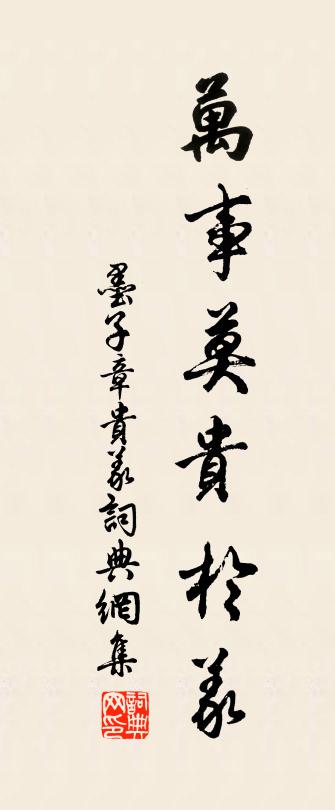 萬事莫貴於義
墨子章貴義詞典網集
詞典網印